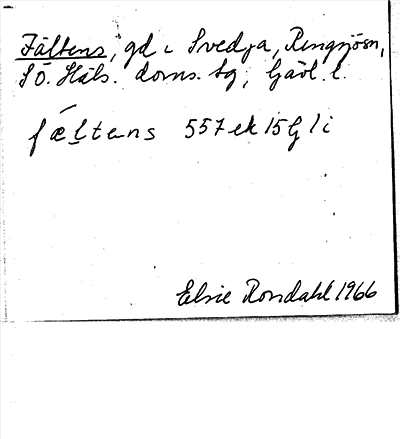 Fältens, gd i Svedja, Rengsjösn,
SÖ. Häls. doms. tg, Gävl. l.
fæ̀ḷtəns 557 ek 15 G l i
Elsie Rondahl 1966